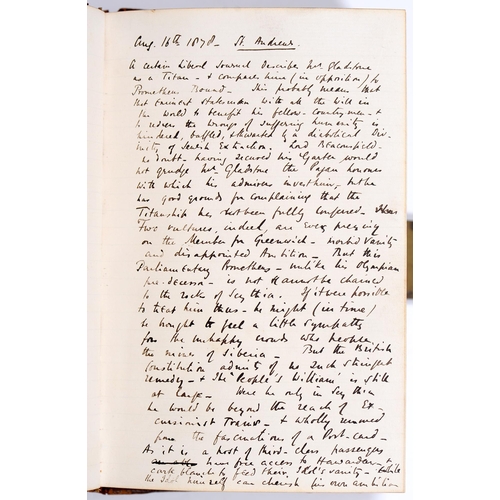 Aug. 16th 1878 - St. Andrews.
A certain Liberal Journal describes Mr Gladstone
as a Titan - & compares him (in opposition) to
Prometheus Bound - This probably means that
that eminent statesman with all the will in
the world to benefit his fellow-countrymen - &
to redress the wrongs of suffering humanity is
hindered, baffled, thwarted by a diabolical Div-
inity, of Jewish Extraction. Lord Beaconsfield -
no doubt - having secured his Garter would
not grudge Mr Gladstone the Pagan honours
with which his admirers invest him, but he
has good grounds for complaining that the
Titanship has not been fully conferred -
Two vultures, indeed, are ever preying
on the Member for Greenwich - morbid vanity
and disappointed Ambition - But this
Parliamentary Prometheus - unlike his Olympian
predecessor - is not & cannot be chained
to the rock of Scythia. If it were possible
to treat him thus - he might (in time)
be brought to feel a little sympathy
for the unhappy crowds who people
the mines of Siberia - But the British
Constitution admits of no such stringent
remedy - & The 'People's William' is still
at large - Were he only in Scythia
he would be beyond the reach of Ex-
cursionist Trains - & wholly removed
from the fascinations of a Post-card -
As it is a host of third-class passengers
have free access to Hawarden - &
carte blanche to feed their Idol's vanity - while
the Idol himself can cherish his own ambition